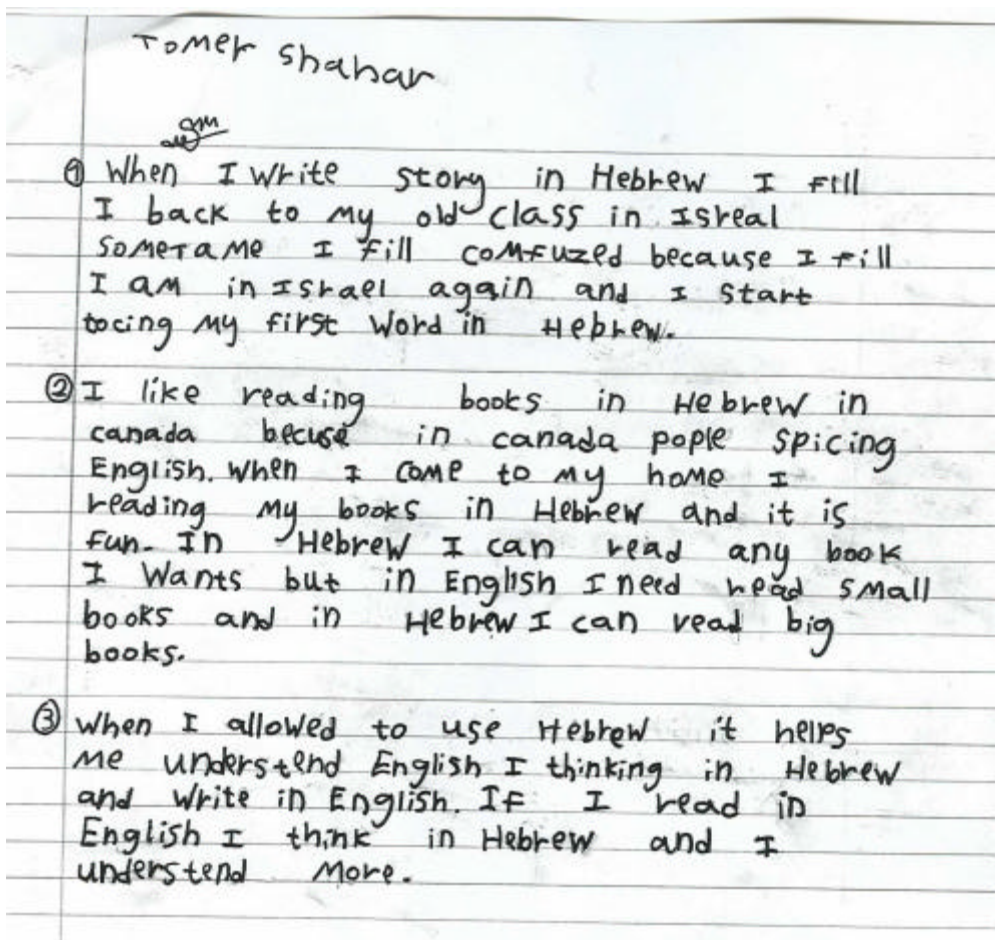 Tomer Shahar
① When I write story in Hebrew I fill
I back to my old class in Isreal
sometame I fill comfuzed because I fill
I am in Israel again and I start
tocing my first word in Hebrew.
② I like reading books in Hebrew in
canada becuse in canada pople spicing
English. When I come to my home I
reading my books in Hebrew and it is
fun. In Hebrew I can read any book
I wants but in English I need read small
books and in Hebrew I can read big
books.
③ When I allowed to use Hebrew it helps
me understend English I thinking in Hebrew
and write in English. If I read in
English I think in Hebrew and I
understend more.